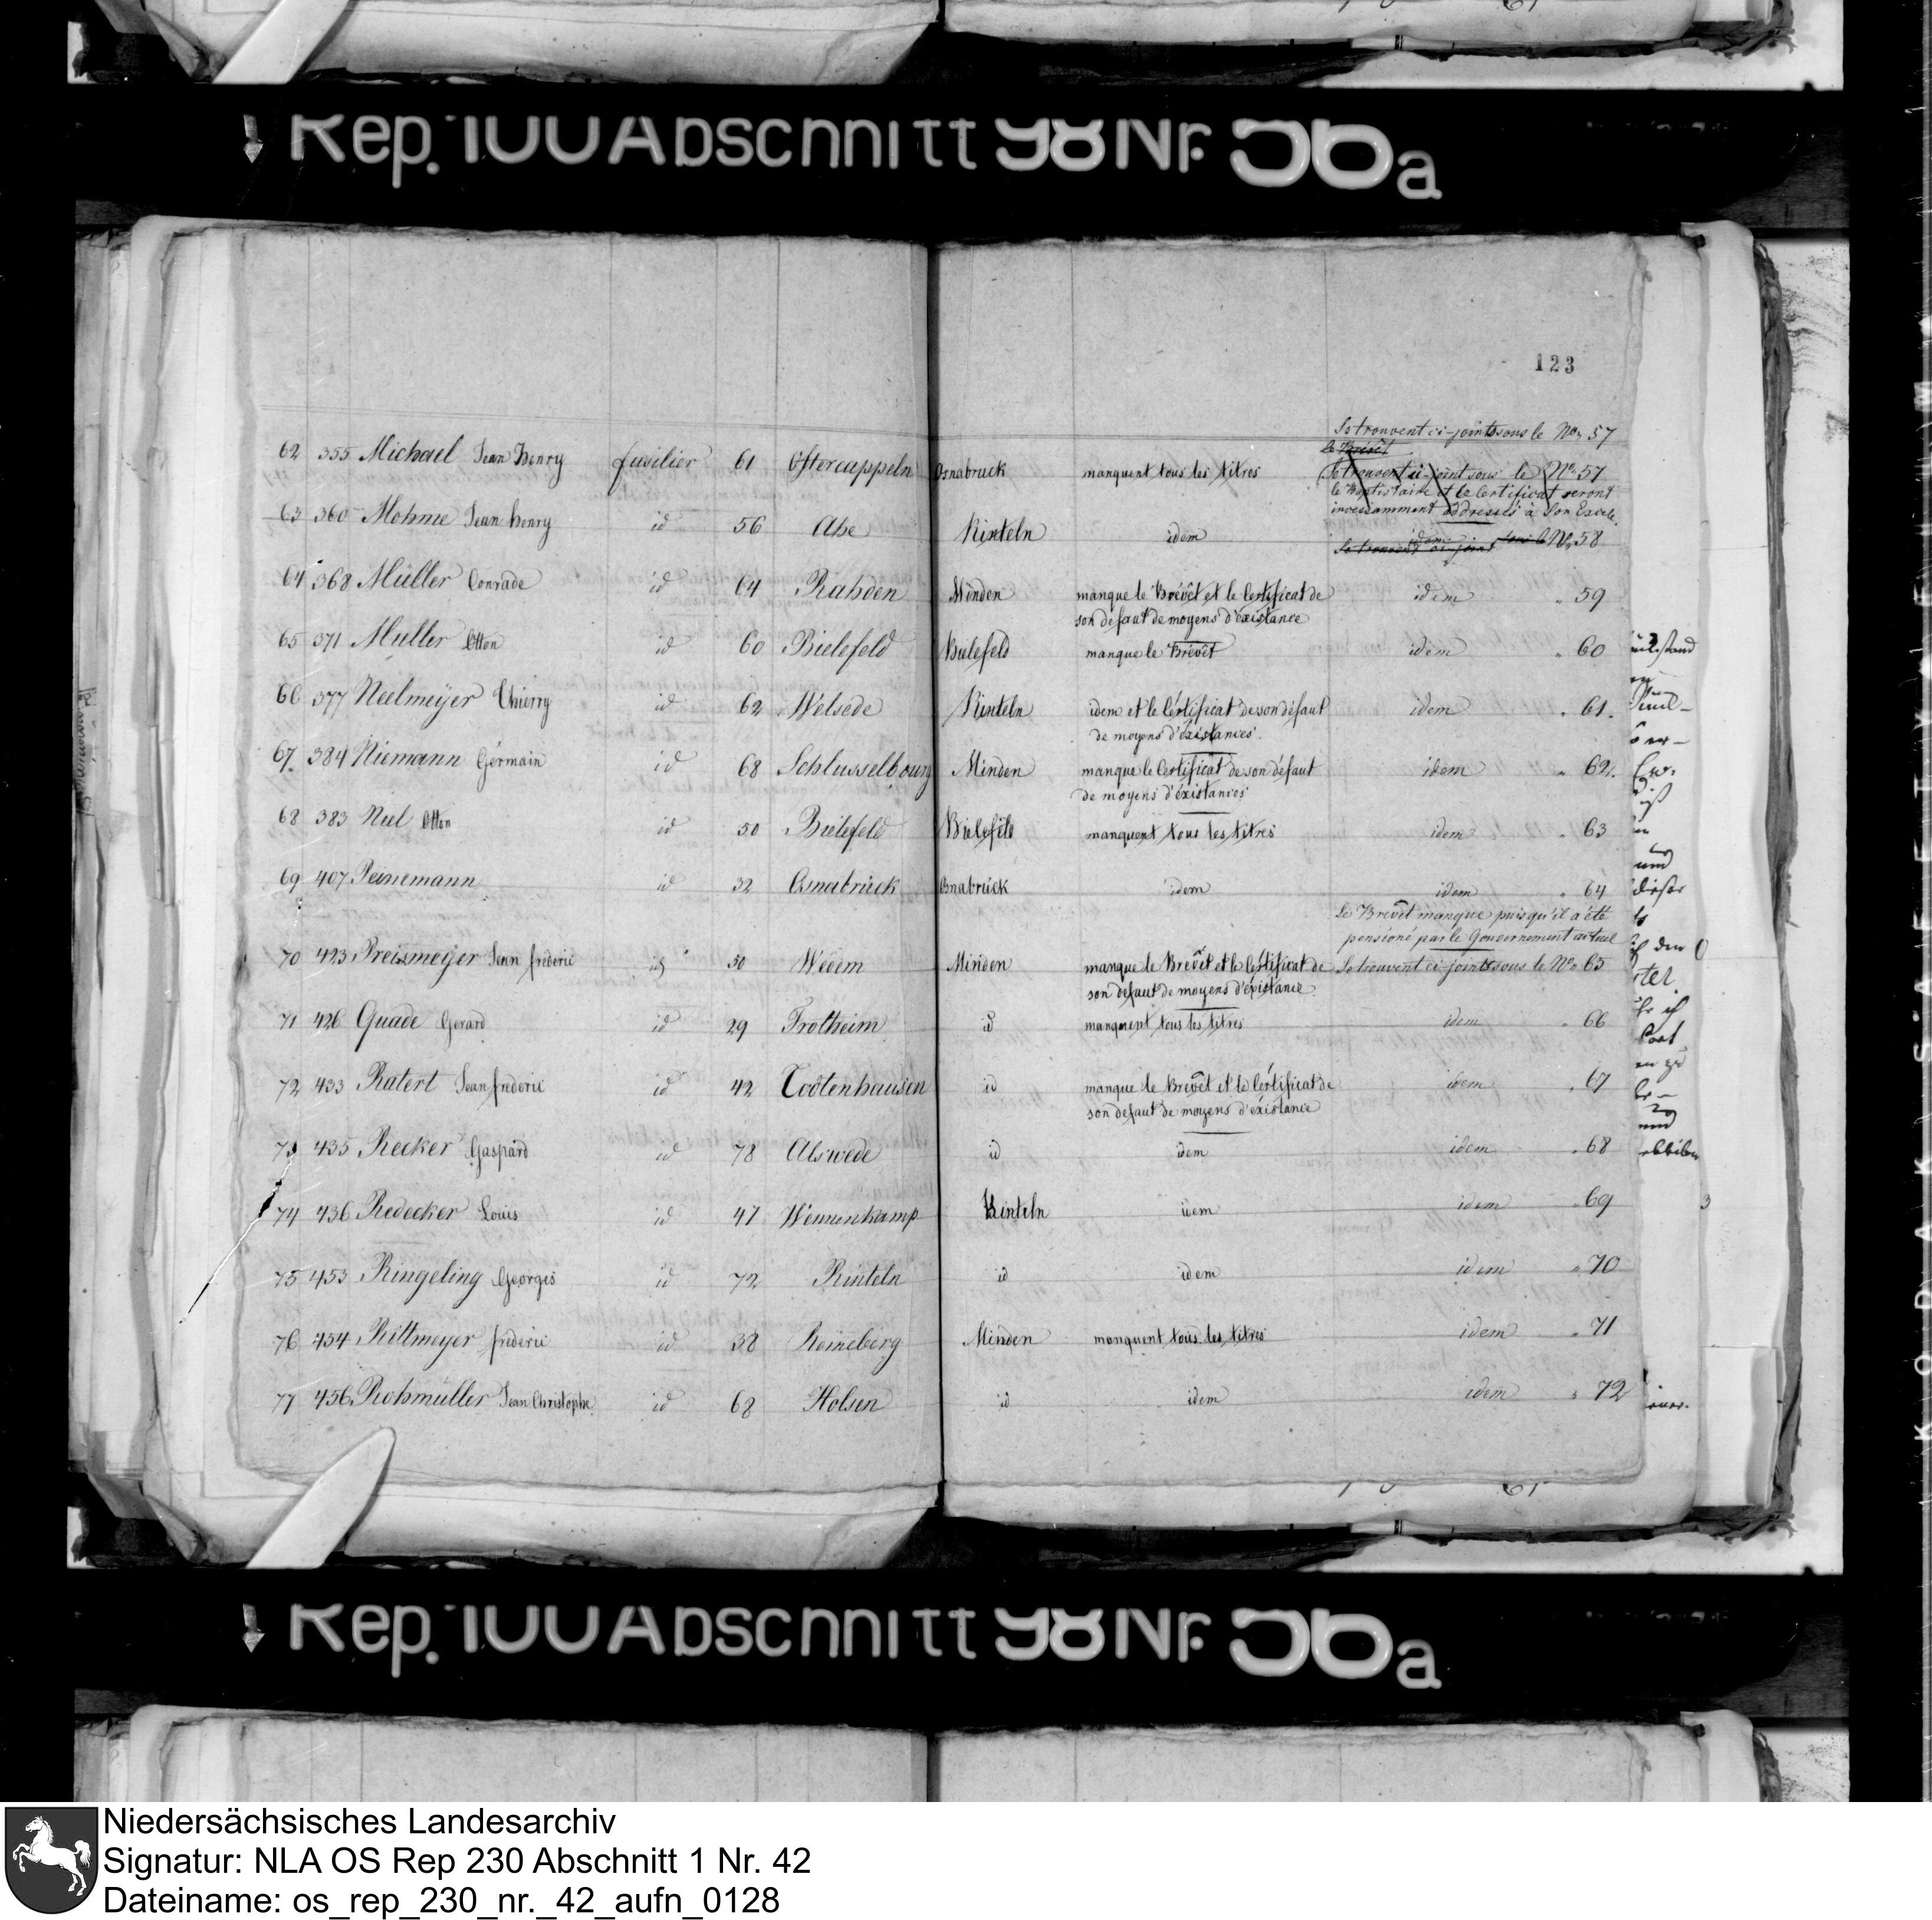 Rep. 100 Abschnitt 98 Nr. 56a
123
Se trouvent ci-joints sous le No. 57
62 355 Michael Jean Henry fusilier 61 Ostercappeln Osnabruck manquent tous les titres
le Brévêt
Se trouvent ci-joint sous le No. 57
le Baptistaire et le Certificat seront
incessamment addressés à Son Excele.
63 360 Mohme Jean henry id 56 Ahe Rinteln idem idem No. 58
Se trouvent ci-joint sous le
64 368 Müller Conrade id 64 Rahden Minden manque le Brévêt et le Certificat de idem " 59
son défaut de moyens d'éxistance
65 371 Muller Otton id 60 Bielefeld Bielefeld manque le Brévêt idem " 60
66 377 Neelmeyer Thierry id 62 Welsede Rinteln idem et le Cértificat de son défaut idem " 61.
de moyens d'éxistances.
67. 384 Niemann Gérmain id 68 Schlusselbourg Minden manque le Certificat de son défaut idem " 62.
de moyens d'éxistances
68 383 Niel Otton id 50 Bielefeld Bielefeld manquent tous les titres idem " 63
69 407 Peinemann id 32 Osnabrück Osnabrück idem idem " 64
Le Brevêt manque puisqu'il a été
pensioné par le Gouvernement actuel
70 423 Preismeyer Jean frederic id 50 Wedem Minden manque le Brevêt et le Certificat de Se trouvent ci-joints sous le No. 65
son defaut de moyens d'éxistance
71 426 Quade Gerard id 29 Frotheim id manquent tous les titres idem " 66
72 433 Ratert Jean frederic id 42 Todtenhausen id manque le Brevêt et le Cértificat de idem " 67
son defaut de moyens d'éxistance
73 435 Recker Gaspard id 78 Alswede id idem idem " 68
74 436 Redecker Louis id 47 Wennenkamp Rinteln idem idem " 69
75 453 Ringeling Georges id 72 Rinteln id idem idem " 70
76 454 Rittmeyer frederic id 38 Reineberg Minden manquent tous les titres idem " 71
77 456 Rohmüller Jean Christophe id 68 Holsen id idem idem " 72
und
dieser
Rep. 100 Abschnitt 98 Nr. 56a
Niedersächsisches Landesarchiv
Signatur: NLA OS Rep 230 Abschnitt 1 Nr. 42
Dateiname: os_rep_230_nr._42_aufn_0128